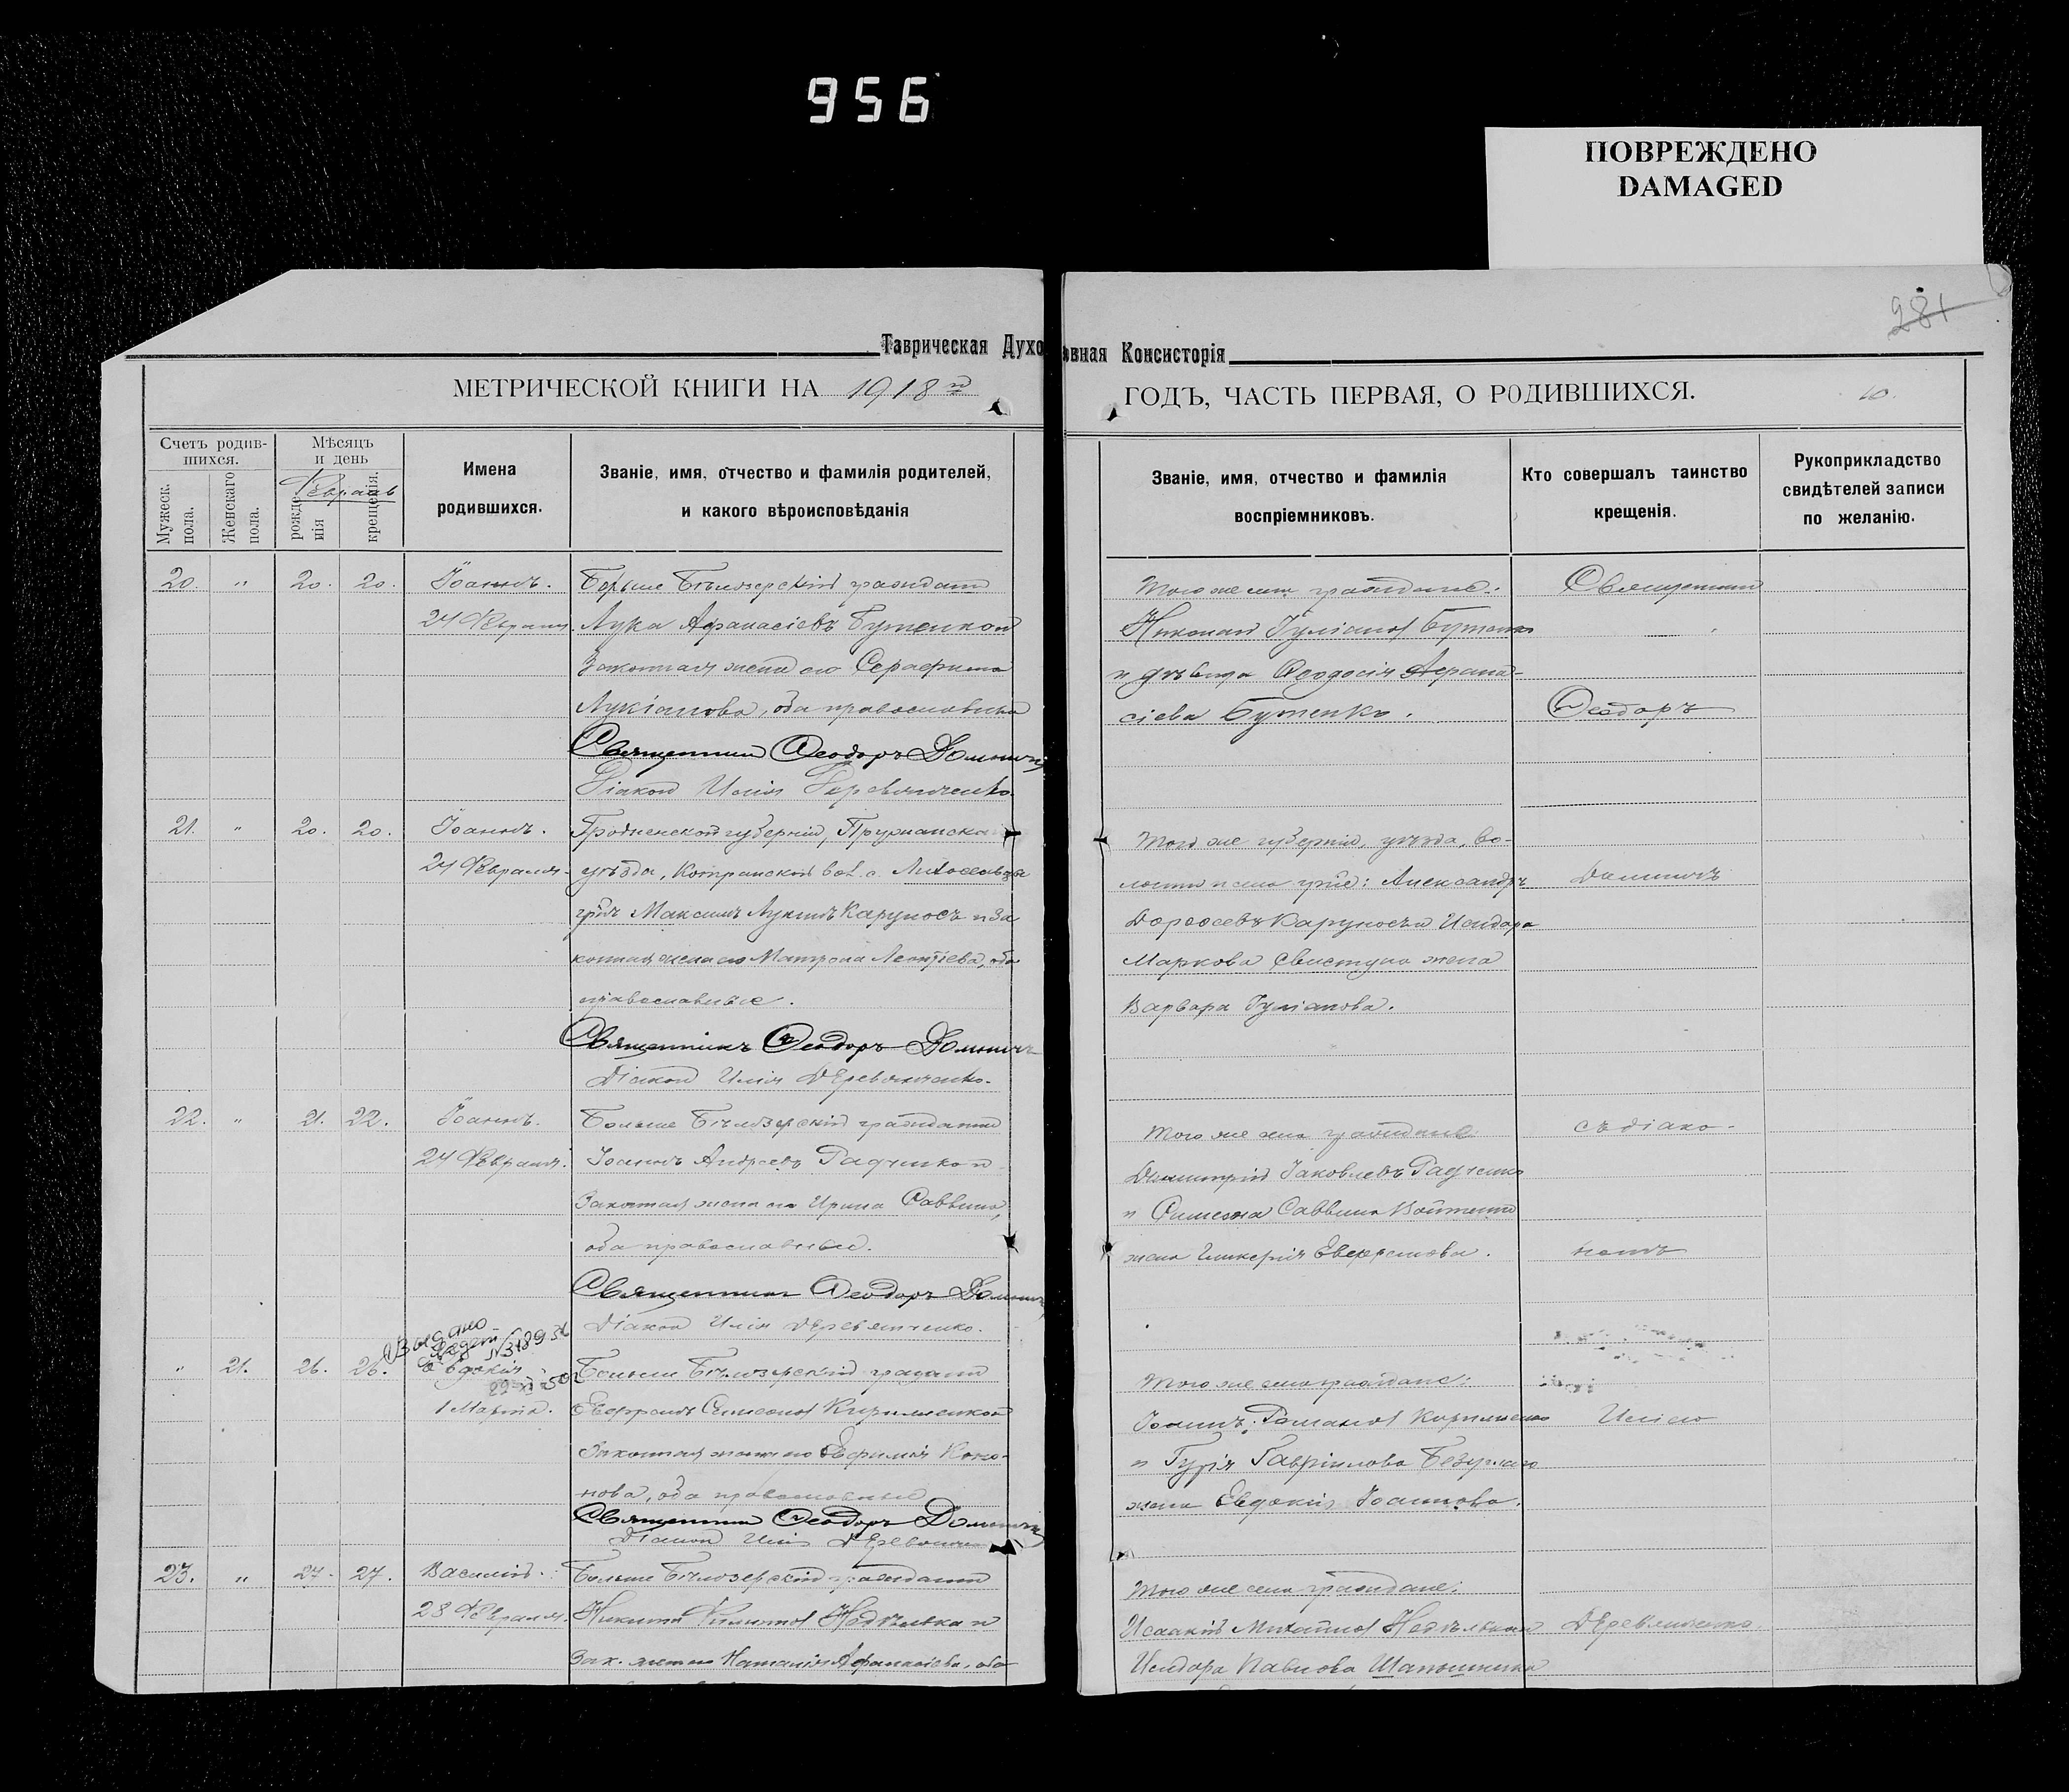 956
ПОВРЕЖДЕНО
DAMAGED
281
Таврическая Духовная Консисторія
МЕТРИЧЕСКОЙ КНИГИ НА 1918й ГОДЪ, ЧАСТЬ ПЕРВАЯ, О РОДИВШИХСЯ.
10.
Счетъ родив-
шихся.
Мужеск.
пола.
Женскаго
пола.
Мѣсяцъ
и день
Февраль
рожде
нія
крещенія.
Имена
родившихся.
Званіе, имя, отчество и фамилія родителей,
и какого вѣроисповѣданія
Званіе, имя, отчество и фамилія
воспріемниковъ.
Кто совершалъ таинство
крещенія.
Рукоприкладство
свидѣтелей записи
по желанію.
20. " 20. 20. Іоаннъ.
24 Февраля.
Больше Бѣлозерскій гражданинъ
Лука Афанасіевъ Бутенко и
Законная жена его Серафима
Лукіанова, оба православные
Священникъ Ѳеодоръ Доминичъ
Діаконъ Илія Деревянченко.
Того же села граждане:
Іуліановъ Бутенко
и дѣвица Ѳеодосія Афана-
сіева Бутенко.
Священникъ
Ѳеодоръ
21. " 20. 20. Іоаннъ.
24 Февраля.
Гродненской губерніи, Пружанска
уѣзда, вол. с.
гр-нъ Максимъ Карунось и За
конная жена его Матрона Леонтіева, оба
православные.
Священникъ Ѳеодоръ Доминичъ
Діаконъ Илія Деревянченко.
Того же губерніи, уѣзда, во-
лости и села гр-не: Александръ
Карунось и Исидора
Маркова Свистуна жена
Варвара Іуліанова.
Доминичъ
22. " 21. 22. Іоаннъ.
24 Февраля.
Больше Бѣлозерскій гражданинъ
Іоаннъ Андреевъ Радченко и
Законная жена его Ирина Саввина,
оба православные.
Священникъ Ѳеодоръ Доминичъ
Діаконъ Илія Деревянченко.
Того же села граждане:
Димитрій Іаковлевъ Радченко
и Симеона Саввина
жена Гликерія Евфремова.
съ діако-
номъ
Выдано
" 21. 26. 26. Евдокія
1 Марта.
Больше Бѣлозерскій гражданинъ
Евфремъ Симеоновъ Кириленко и
Законная жена его Евфимія Коно-
нова, оба православные
Священникъ Ѳеодоръ Доминичъ
Діаконъ Илія Деревянченко
Того же села граждане:
Іоаннъ Романовъ Кириленко
и Гурія Гавріилова
жена Евдокія Іоаннова.
Иліею
23. " 27. 27. Василій.
28 Февраля.
Больше Бѣлозерскій гражданинъ
Никита Филиповъ Недѣлька и
Зак. жена его Наталія Афанасіева, оба
Того же села граждане:
Исаакій Михайловъ Недѣлька и
Исидора Павлова
Деревянченко